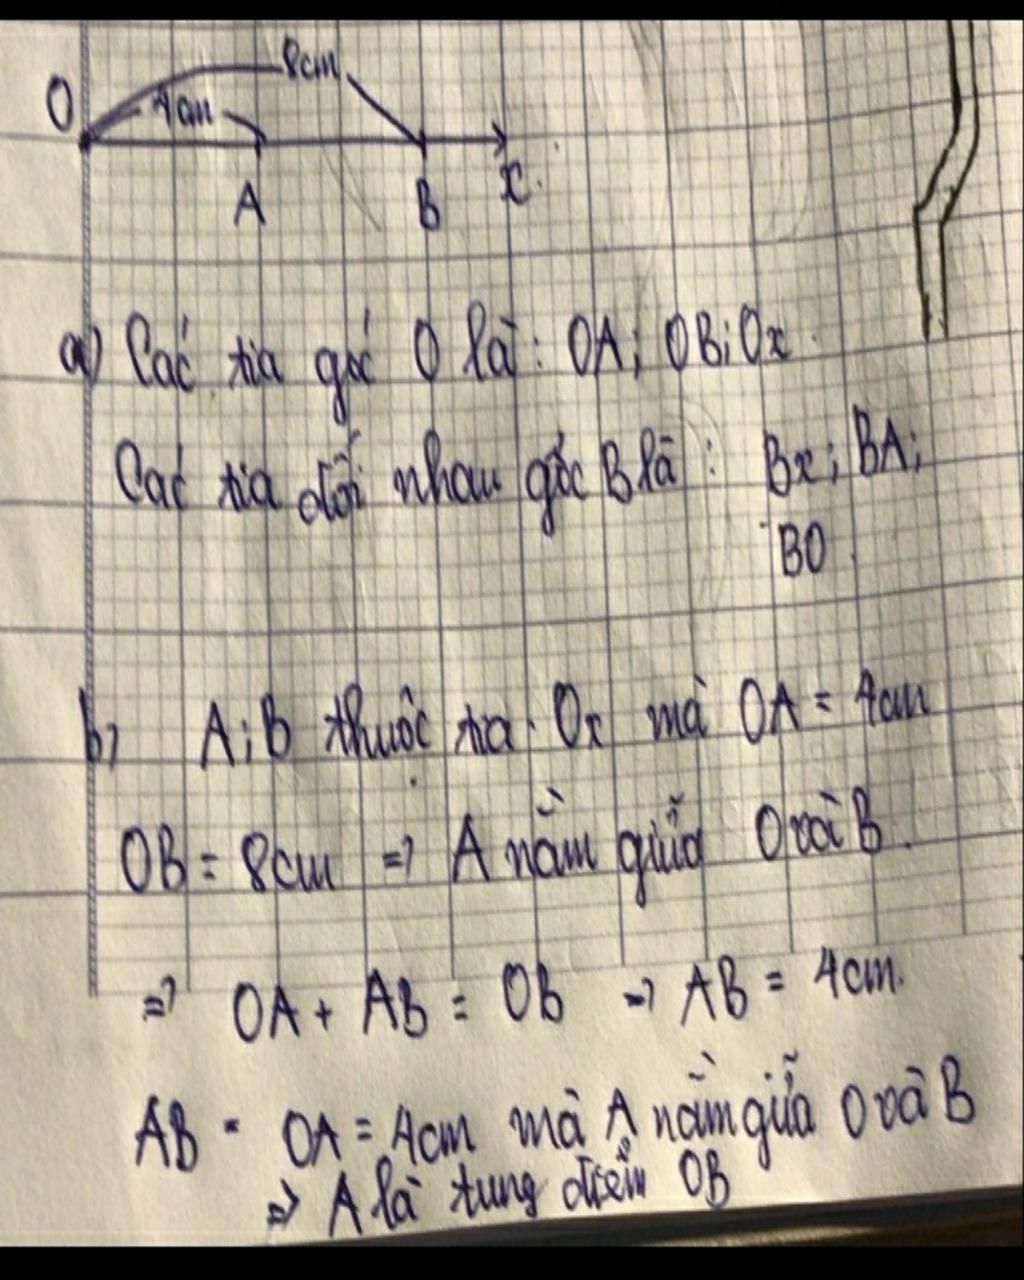 8cm
O
4cm
A
B
x
a) Các tia gốc O là: OA; OB; Ox
Các tia đối nhau gốc B là: Bx; BA;
BO
b) A; B thuộc tia Ox mà OA = 4cm
OB = 8cm => A nằm giữa O và B.
=> OA + AB = OB => AB = 4cm.
AB = OA = 4cm mà A nằm giữa O và B
=> A là tung điểm OB